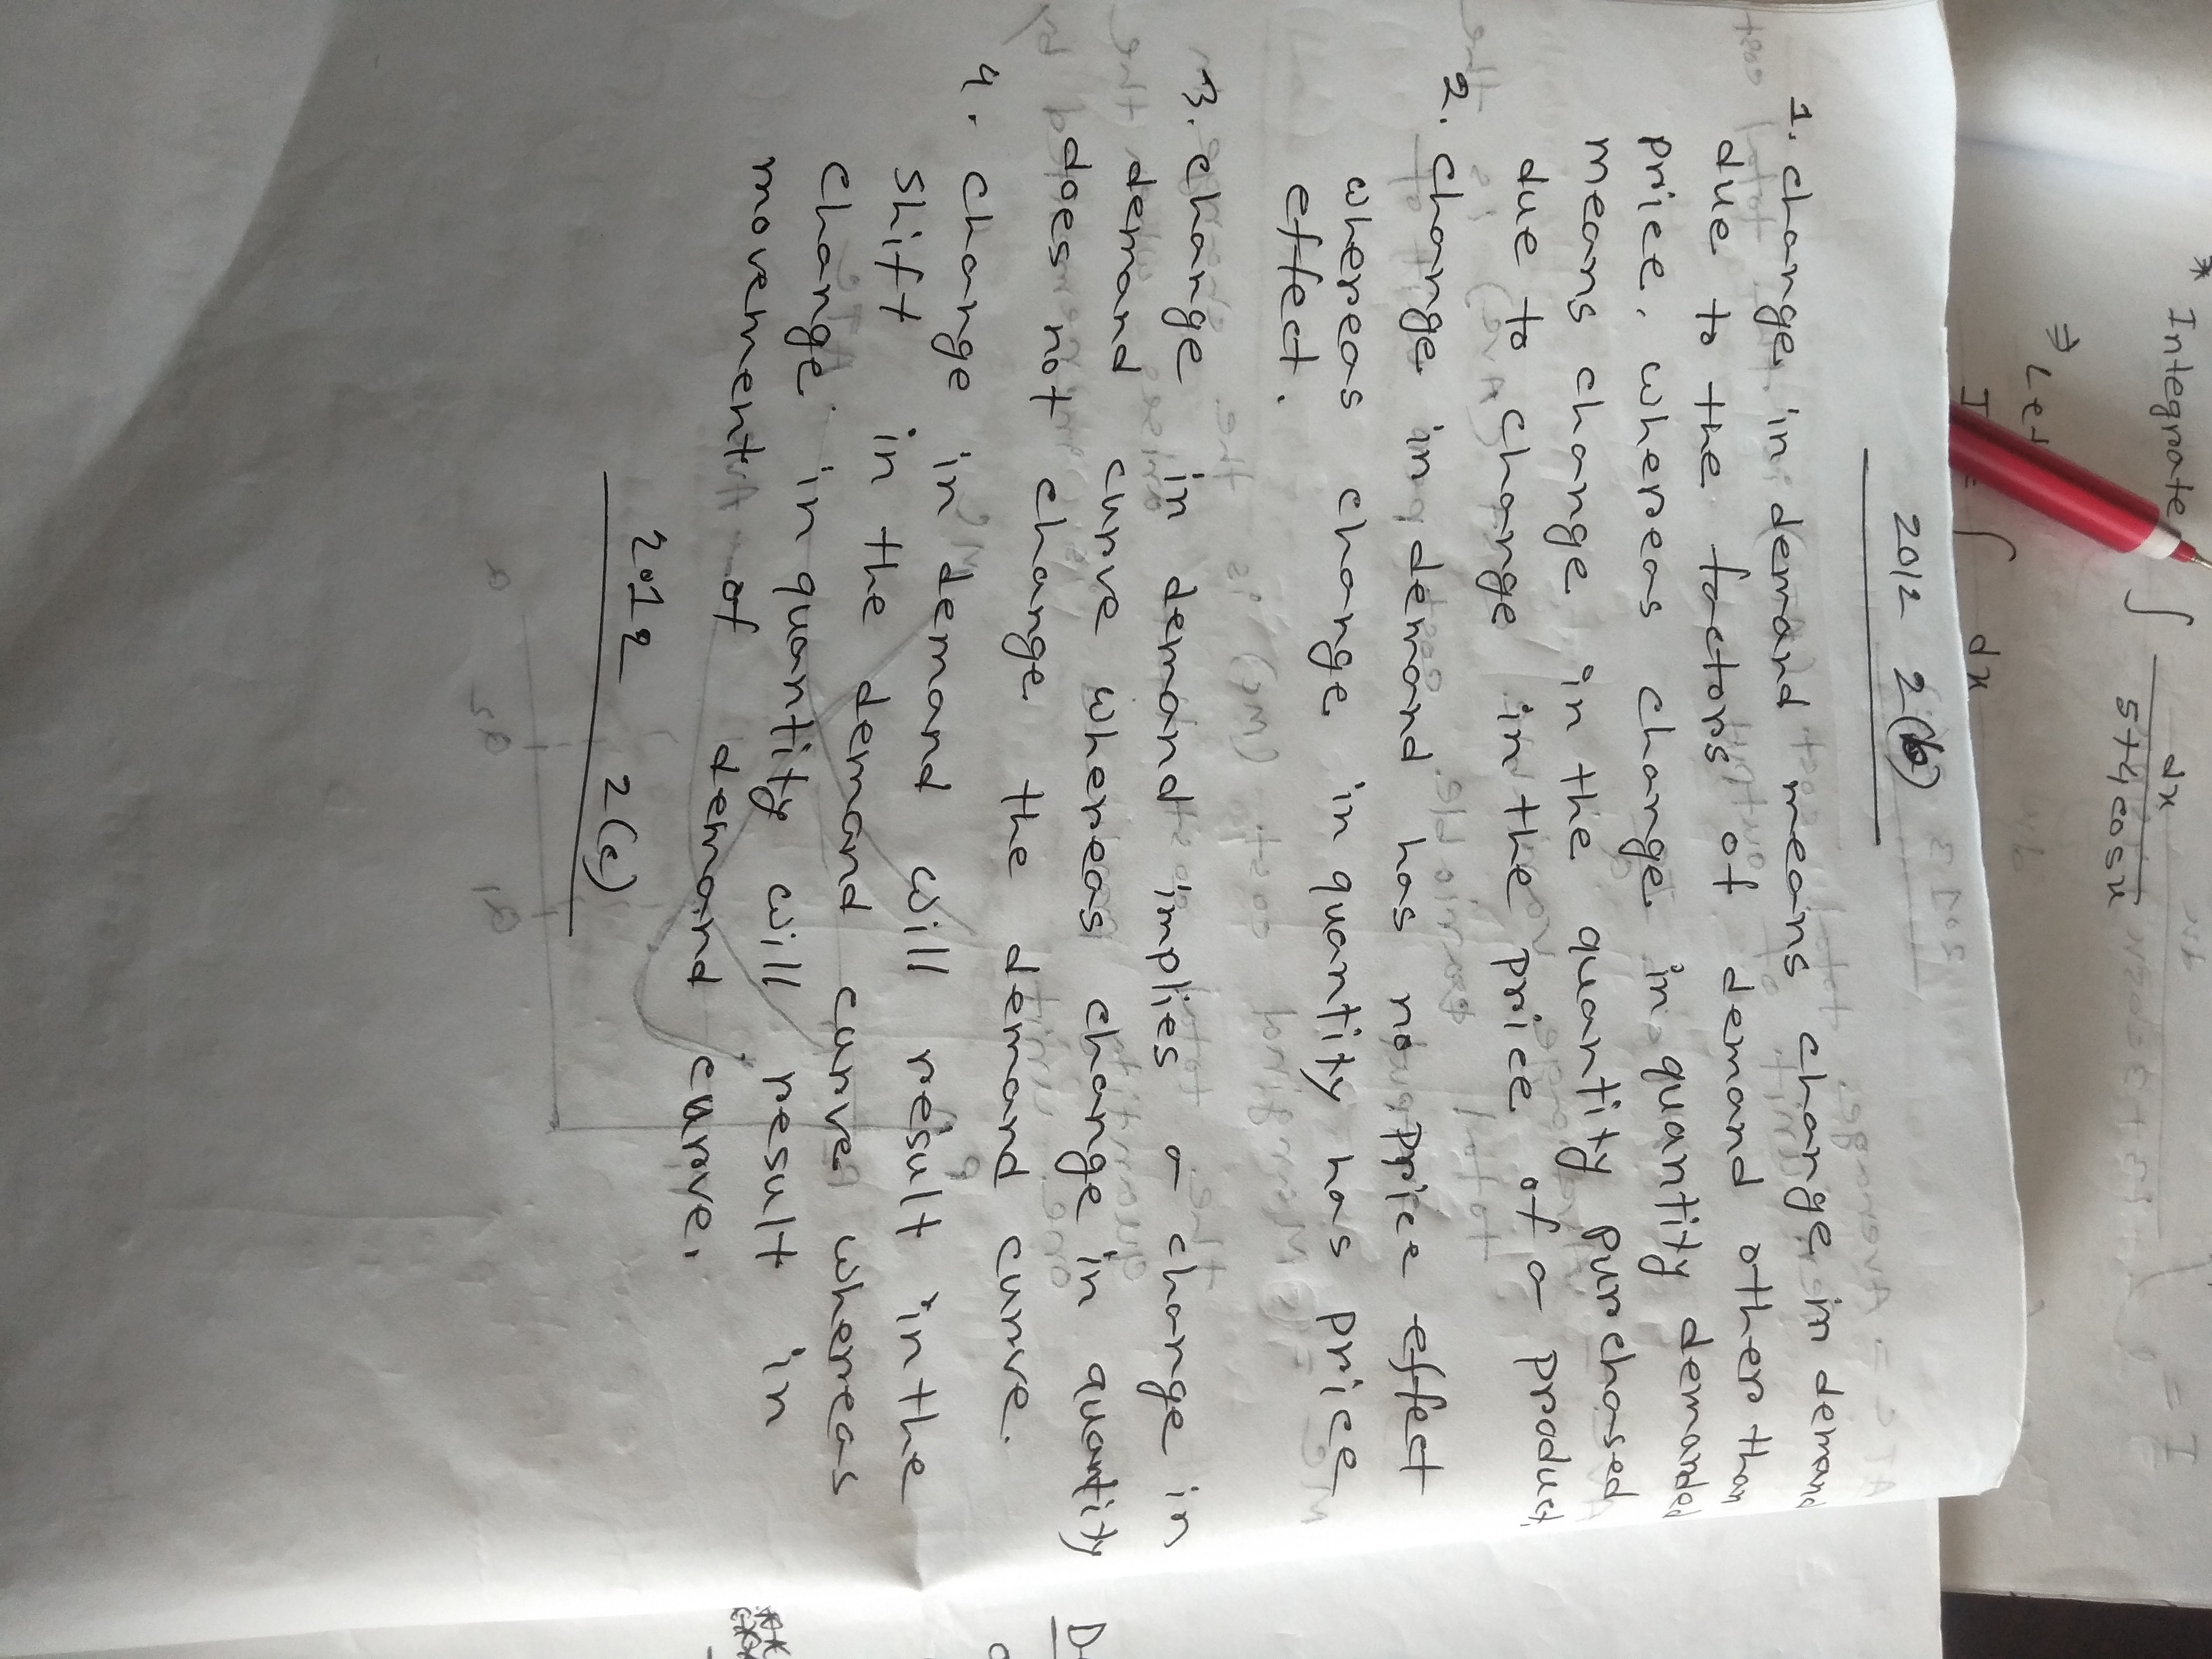 * Integrate ∫ dx
5+4cosx
I =
⇒ Let
I = ∫ dx
2012 2(b)
1. change in demand means change in demand
due to the factors of demand other than
price. whereas change in quantity demanded
means change in the quantity purchased
due to change in the price of a product.
2. change in demand has no price effect
whereas change in quantity has price
effect.
3. change in demand implies a change in
demand curve whereas change in quantity
does not change the demand curve.
4. change in demand will result in the
shift in the demand curve whereas
change in quantity will result in
movement of demand curve.
2012 2(c)